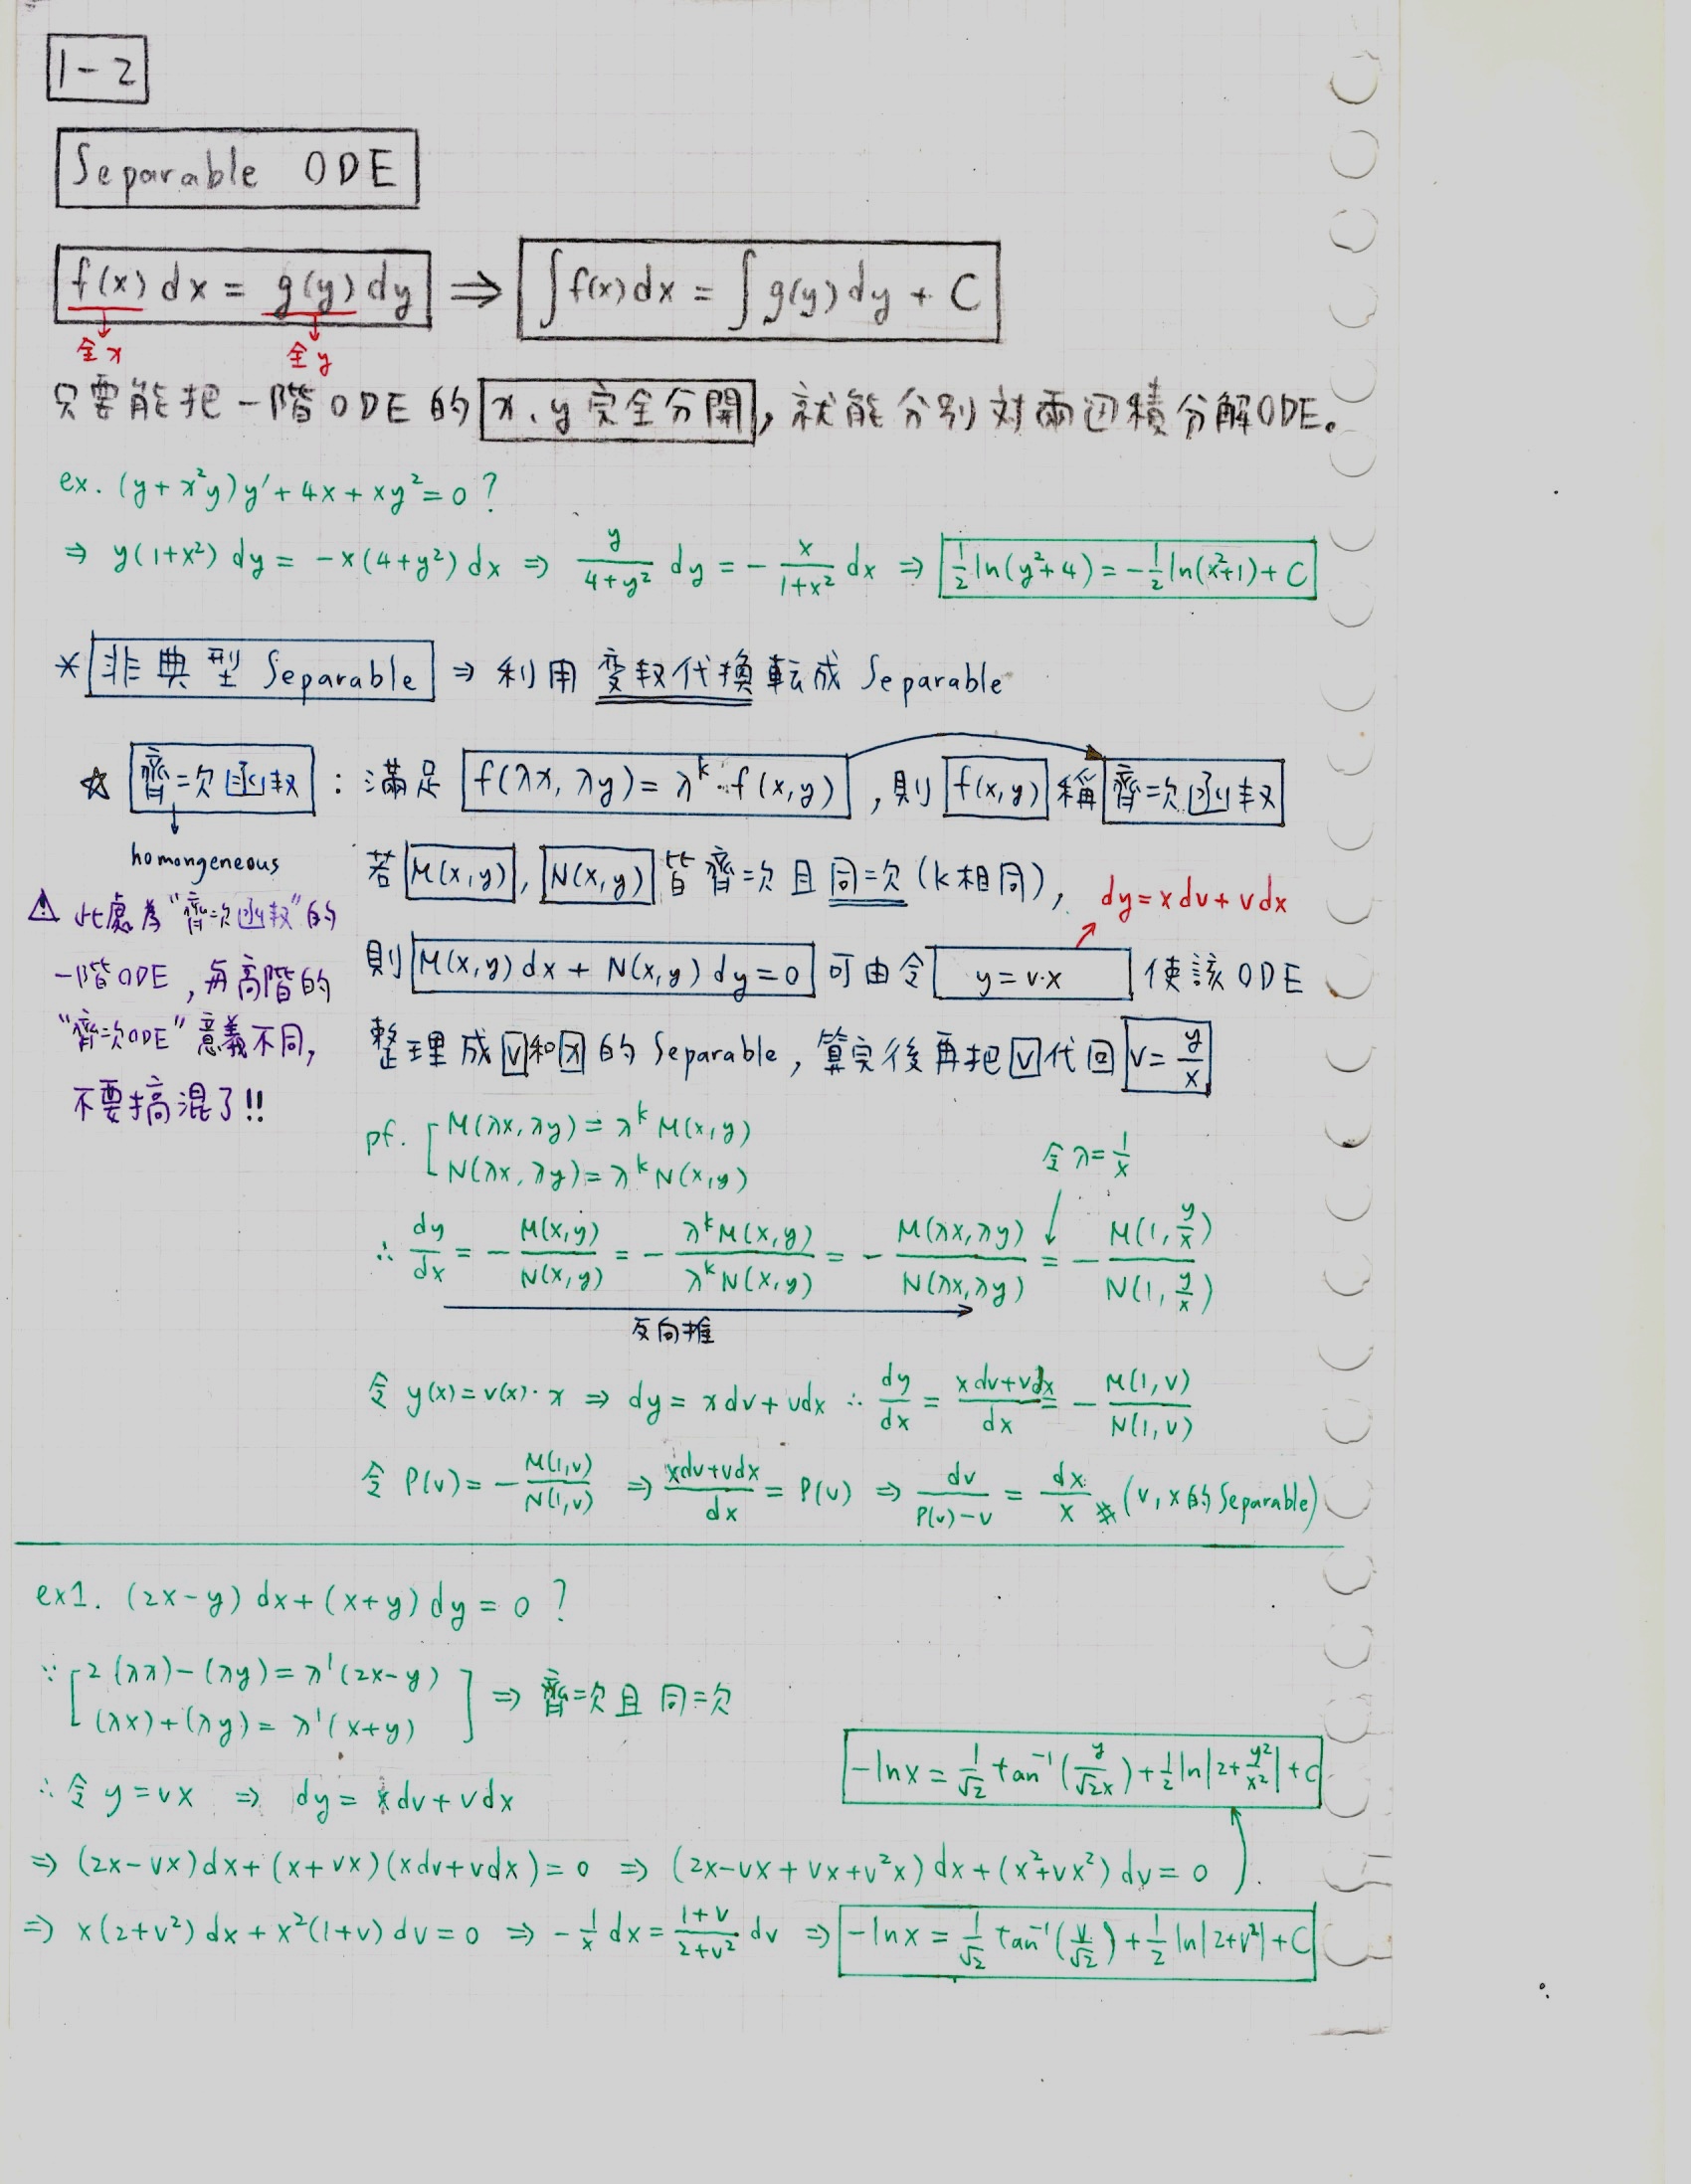 1-2
Separable ODE
f(x) dx = g(y) dy ⇒ ∫f(x)dx = ∫g(y)dy + C
全x 全y
只要能把一階ODE的x、y完全分開,就能分別対兩辺積分解ODE。
ex. (y+x²y)y'+4x+xy²=0?
⇒ y(1+x²) dy = -x(4+y²) dx ⇒ y/(4+y²) dy = - x/(1+x²) dx ⇒ 1/2 ln(y²+4) = -1/2 ln(x²+1) + C
* 非典型 Separable ⇒ 利用变数代換転成 Separable
☆ 齊次函数 : 満足 f(λx, λy) = λ^k · f(x,y) , 則 f(x,y) 稱 齊次函数
homongeneous
若 M(x,y), N(x,y) 皆齊次且同次(k相同),
dy = x dv + v dx
則 M(x,y) dx + N(x,y) dy = 0 可由令 y = v·x 使該ODE
整理成 v 和 x 的 Separable, 算完後再把 v 代回 v = y/x
⚠ 此處為"齊次函数"的
一階ODE, 与高階的
"齊次ODE"意義不同,
不要搞混了!!
pf. [ M(λx, λy) = λ^k M(x,y)
N(λx, λy) = λ^k N(x,y)
令 λ = 1/x
∴ dy/dx = - M(x,y)/N(x,y) = - λ^k M(x,y)/λ^k N(x,y) = - M(λx,λy)/N(λx,λy) = - M(1, y/x)/N(1, y/x)
反向推
令 y(x) = v(x)·x ⇒ dy = x dv + v dx ∴ dy/dx = (x dv + v dx)/dx = - M(1,v)/N(1,v)
令 P(v) = - M(1,v)/N(1,v) ⇒ (x dv + v dx)/dx = P(v) ⇒ dv/(P(v)-v) = dx/x # (v, x的 Separable)
ex1. (2x-y) dx + (x+y) dy = 0 ?
∵ [ 2(λx)-(λy) = λ¹(2x-y)
(λx)+(λy) = λ¹(x+y) ] ⇒ 齊次且同次
-ln x = 1/√2 tan⁻¹(y/√2x) + 1/2 ln|2+y²/x²| + C
∴ 令 y = vx ⇒ dy = x dv + v dx
⇒ (2x-vx)dx + (x+vx)(x dv + v dx) = 0 ⇒ (2x-vx+vx+v²x) dx + (x²+vx²) dv = 0
⇒ x(2+v²) dx + x²(1+v) dv = 0 ⇒ - 1/x dx = (1+v)/(2+v²) dv ⇒ -ln x = 1/√2 tan⁻¹(v/√2) + 1/2 ln|2+v²| + C